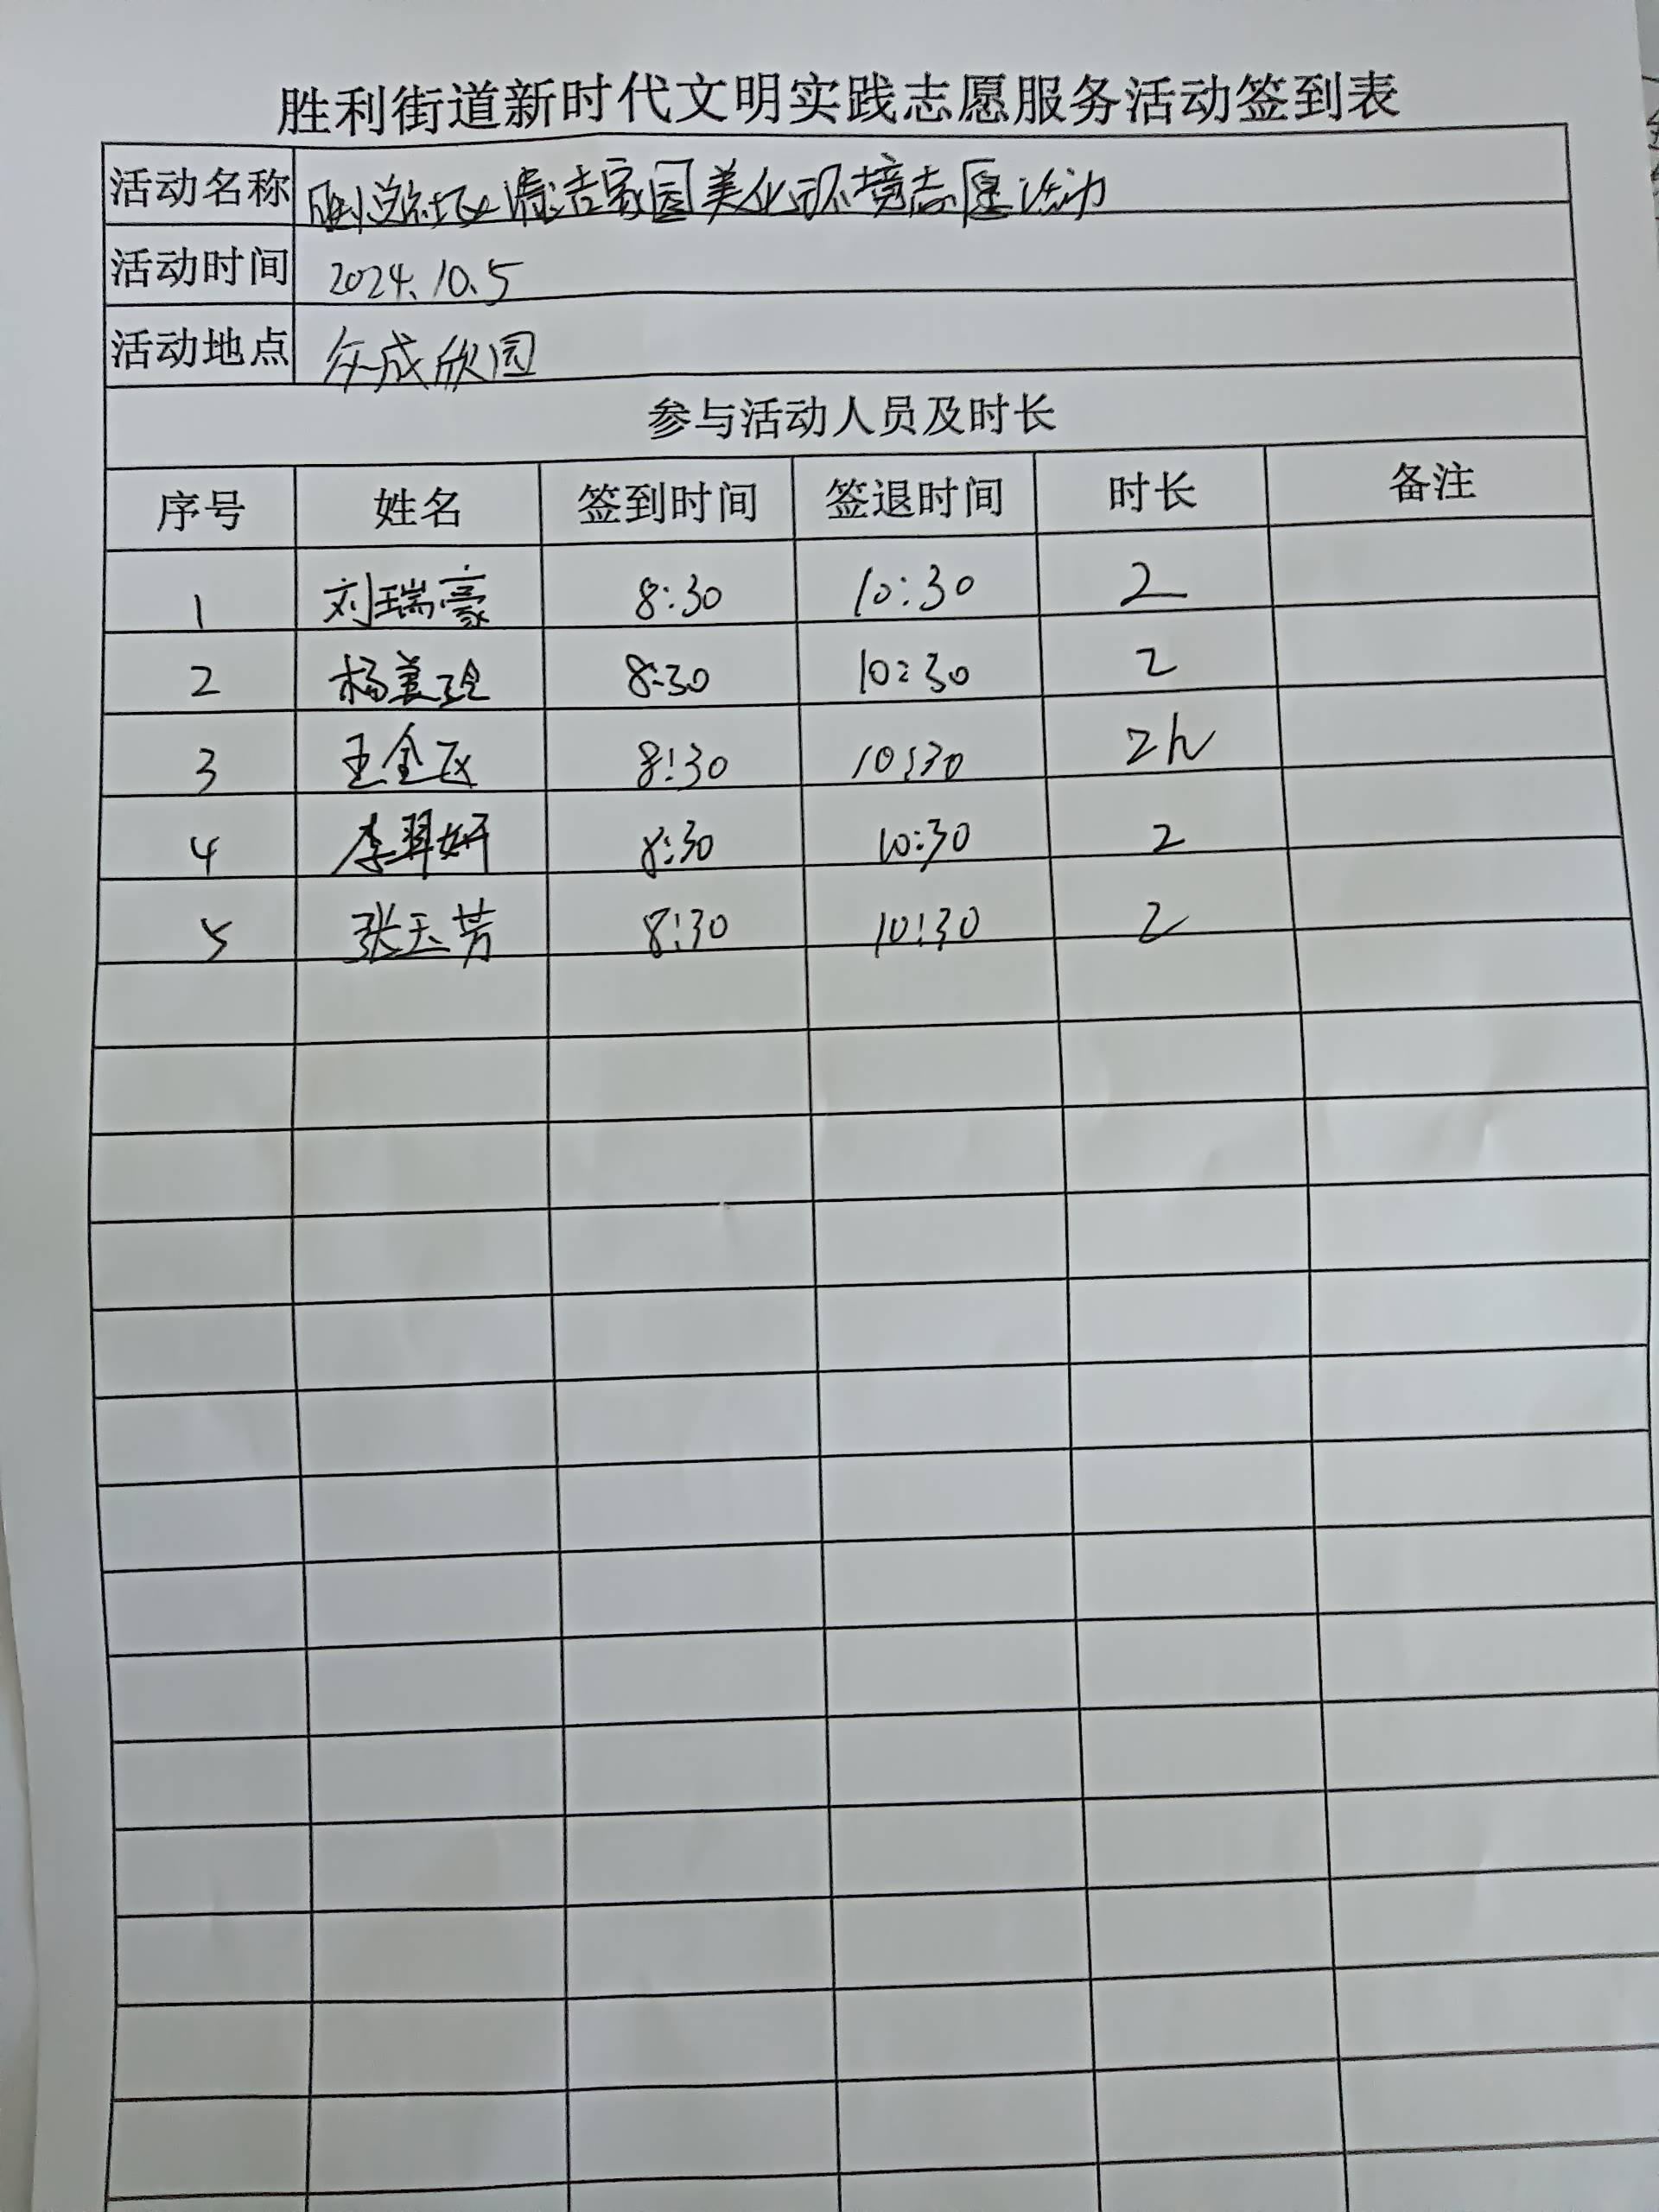 胜利街道新时代文明实践志愿服务活动签到表
活动名称 社区清洁家园美化环境志愿活动
活动时间 2024.10.5
活动地点 成欣园
参与活动人员及时长
序号 姓名 签到时间 签退时间 时长 备注
1 刘瑞豪 8:30 10:30 2
2 杨美玲 8:30 10:30 2
3 王金 8:30 10:30 2h
4 李妍 8:30 10:30 2
5 张玉芳 8:30 10:30 2